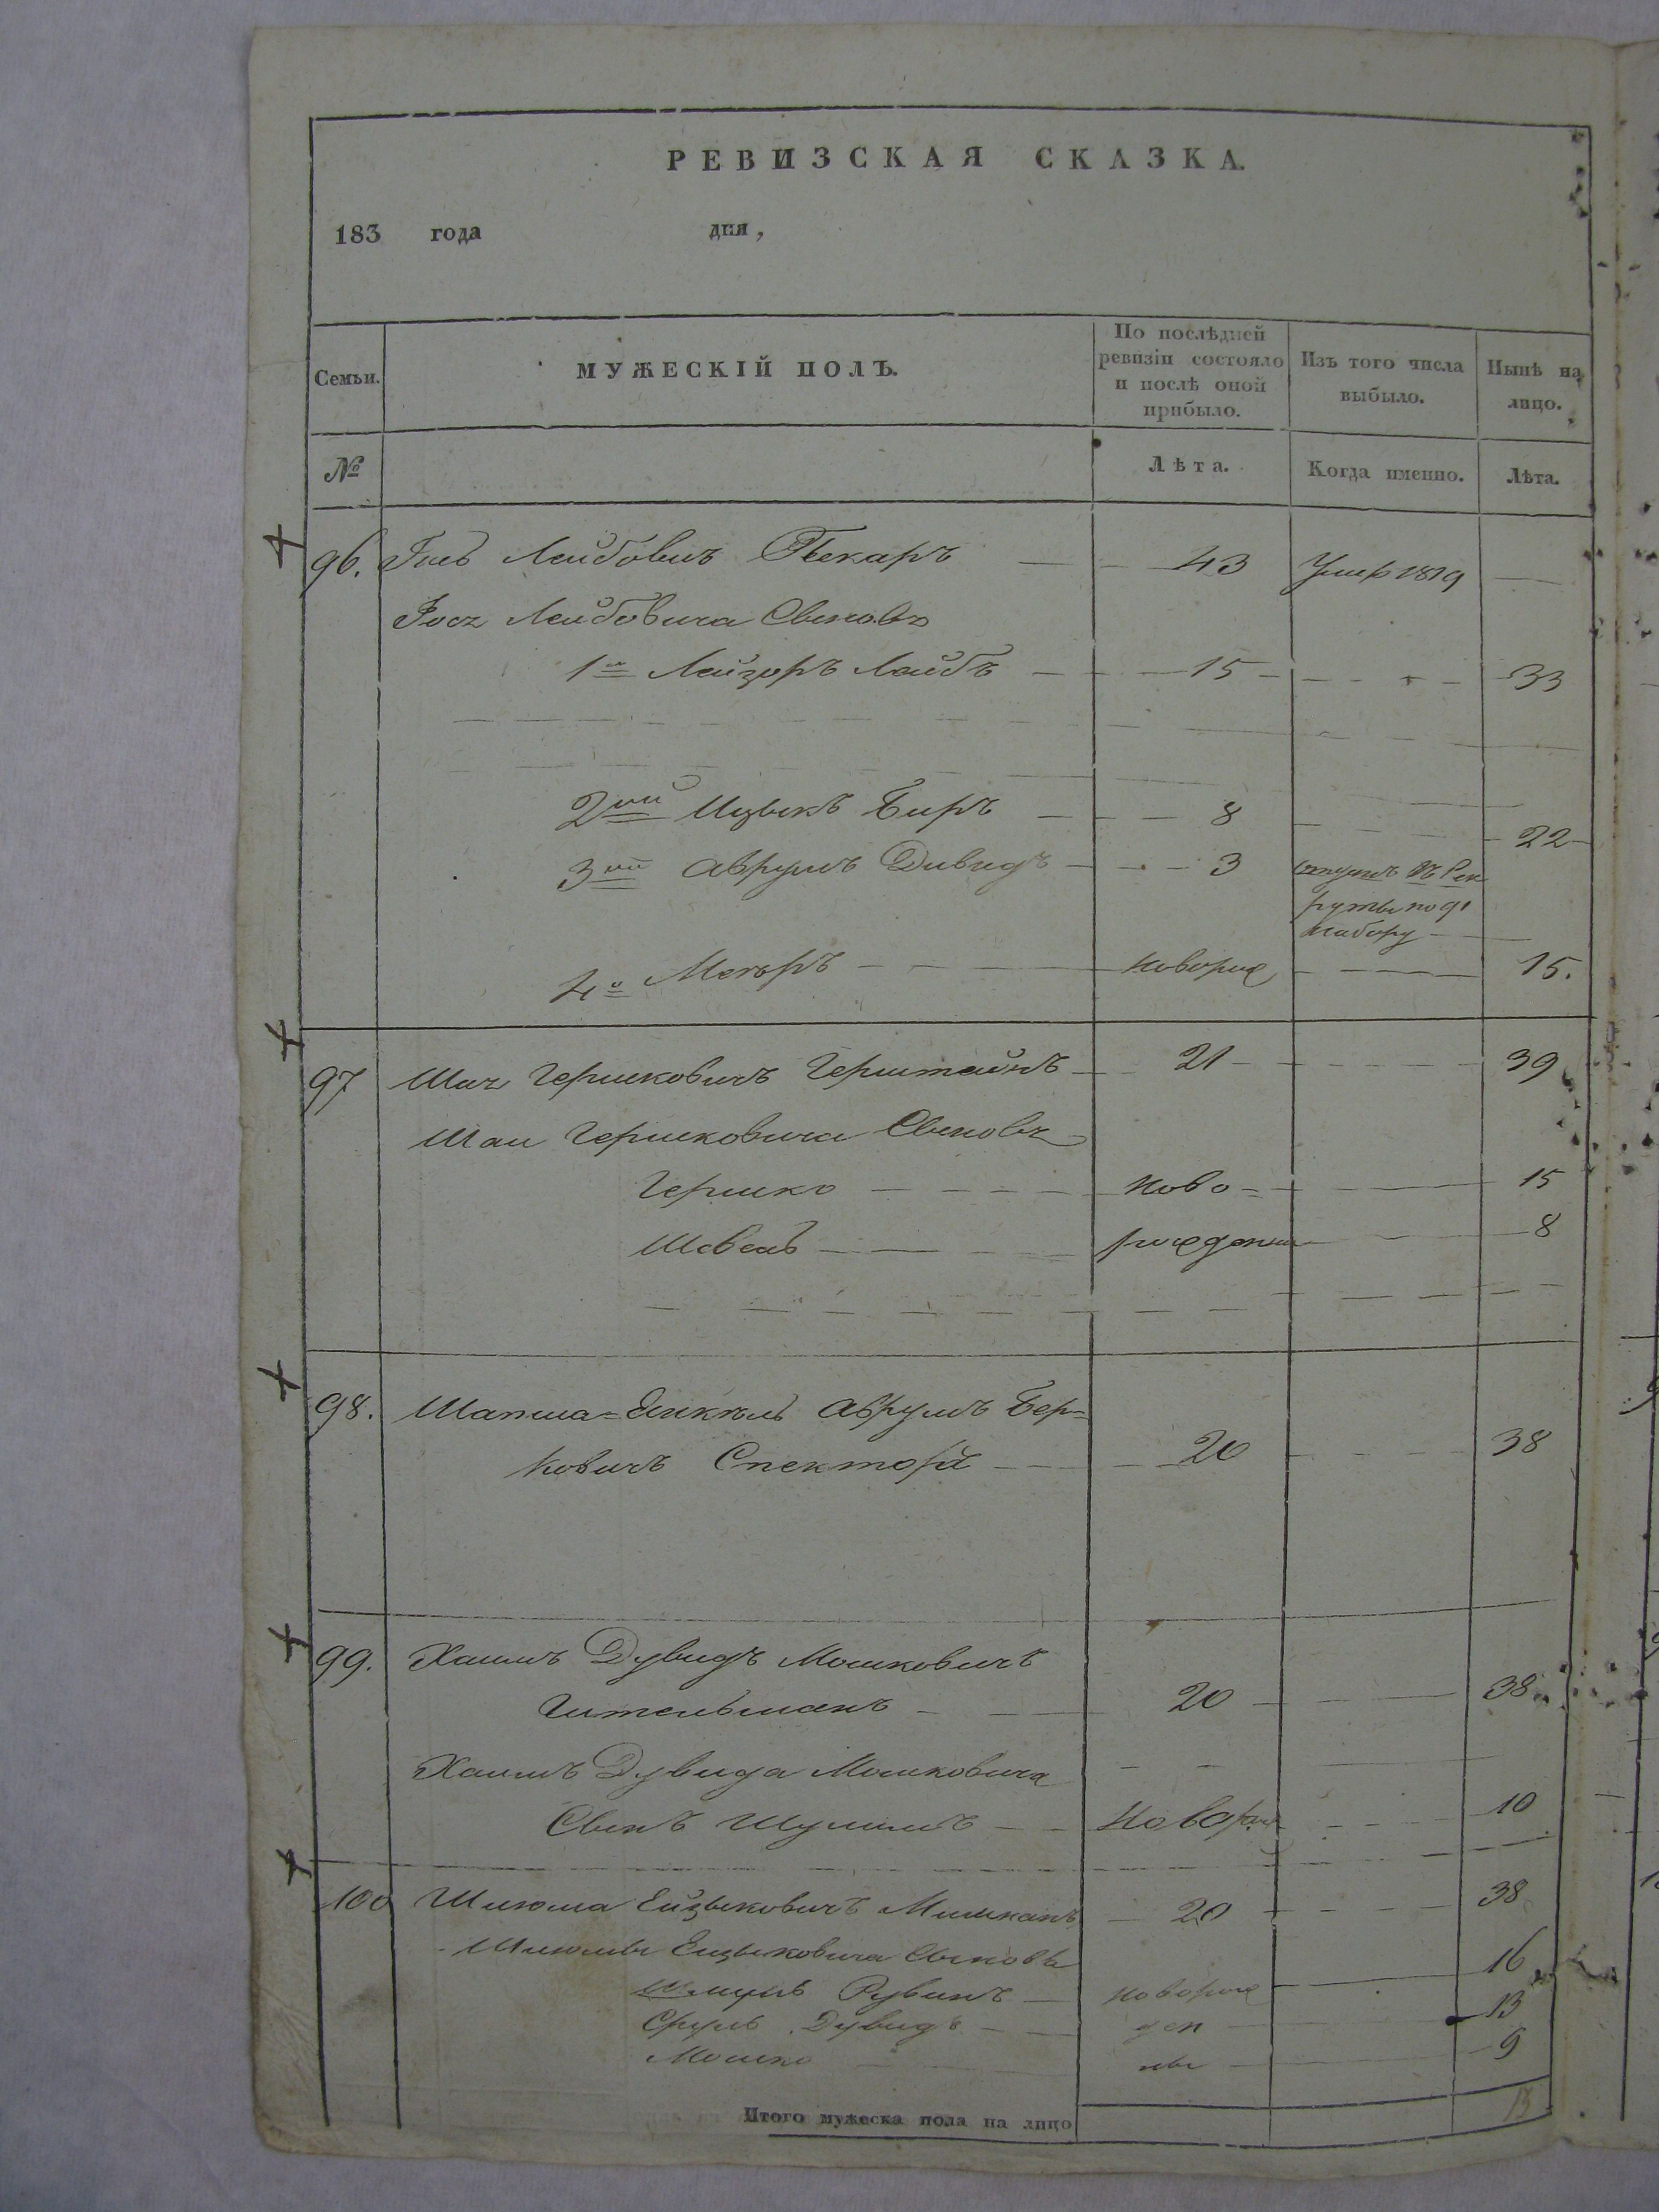 РЕВИЗСКАЯ СКАЗКА.
183 года дня,
Семьи. МУЖЕСКІЙ ПОЛЪ. По послѣдней ревизіи состояло и послѣ оной прибыло. Изъ того числа выбыло. Нынѣ на лицо.
№ Лѣта. Когда именно. Лѣта.
96. Лейбовичъ Пекаръ 43 Умер 1819
Лейбовича Сыновъ
1й Лейзоръ Лейбъ 15 33
2ий Ицыкъ Беръ 8 22
3ий Аврумъ Дивидъ 3 въ Рек
руты по 91
набору
4й Мееръ новорож 15.
97 Шая Гершковичъ Герштейнъ 21 39
Шаи Гершковича Сыновъя
Гершко ново= 15
Шевель рожденны 8
98. Шапша=Янкель Аврумъ Бер=
ковичъ Спекторъ 20 38
99. Хаимъ Дувидъ Мошковичъ
Гительманъ 20 38
Хаимъ Дувида Мошковича
Сынъ Шулимъ Новорож 10
100 Шлюма Ейзыковичъ 20 38
Шлюмы Ейзыковича Сыновъя
Шмуль Рувинъ новорож 16
Сруль Дувидъ ден 13
Мошко ны 9
Итого мужеска пола на лицо 13